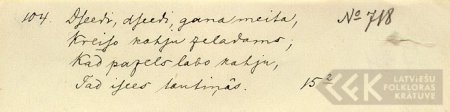 104. Dseedi, dseedi, gana meita, № 718
Kreiso kahju zeladams;
Kad pazels labo kahju,
Tad isees tautiņâs. 15²
LATVIEŠU
FOLKLORAS
KRĀTUVE